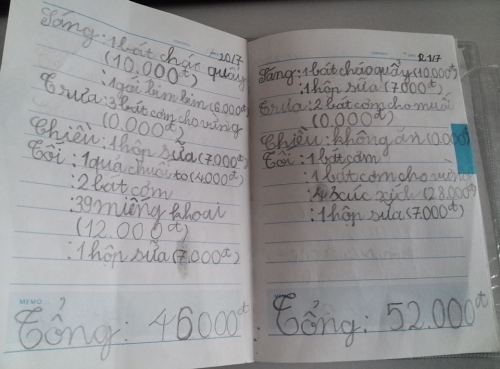 20/7
Sáng: 1 bát cháo quẩy
(10.000đ)
: 1 gói bim bim (6.000đ)
Trưa: 3 bát cơm cho vừng
(0.000đ)
Chiều: 1 hộp sữa (7.000đ)
Tối: 1 quả chuối to (4.000đ)
: 2 bát cơm
: 39 miếng khoai
(12.000đ)
: 1 hộp sữa (7.000đ)
MEMO
Tổng: 46000đ
21/7
Sáng: 1 bát cháo quẩy (10.000đ)
: 1 hộp sữa (7.000đ)
Trưa: 2 bát cơm cho muối
(0.000đ)
Chiều: không ăn (0.000đ)
Tối: 1 bát cơm
: 1 bát cơm cho vừng
: 4 xúc xích (28.000đ)
: 1 hộp sữa (7.000đ)
: Tổng: 52.000đ